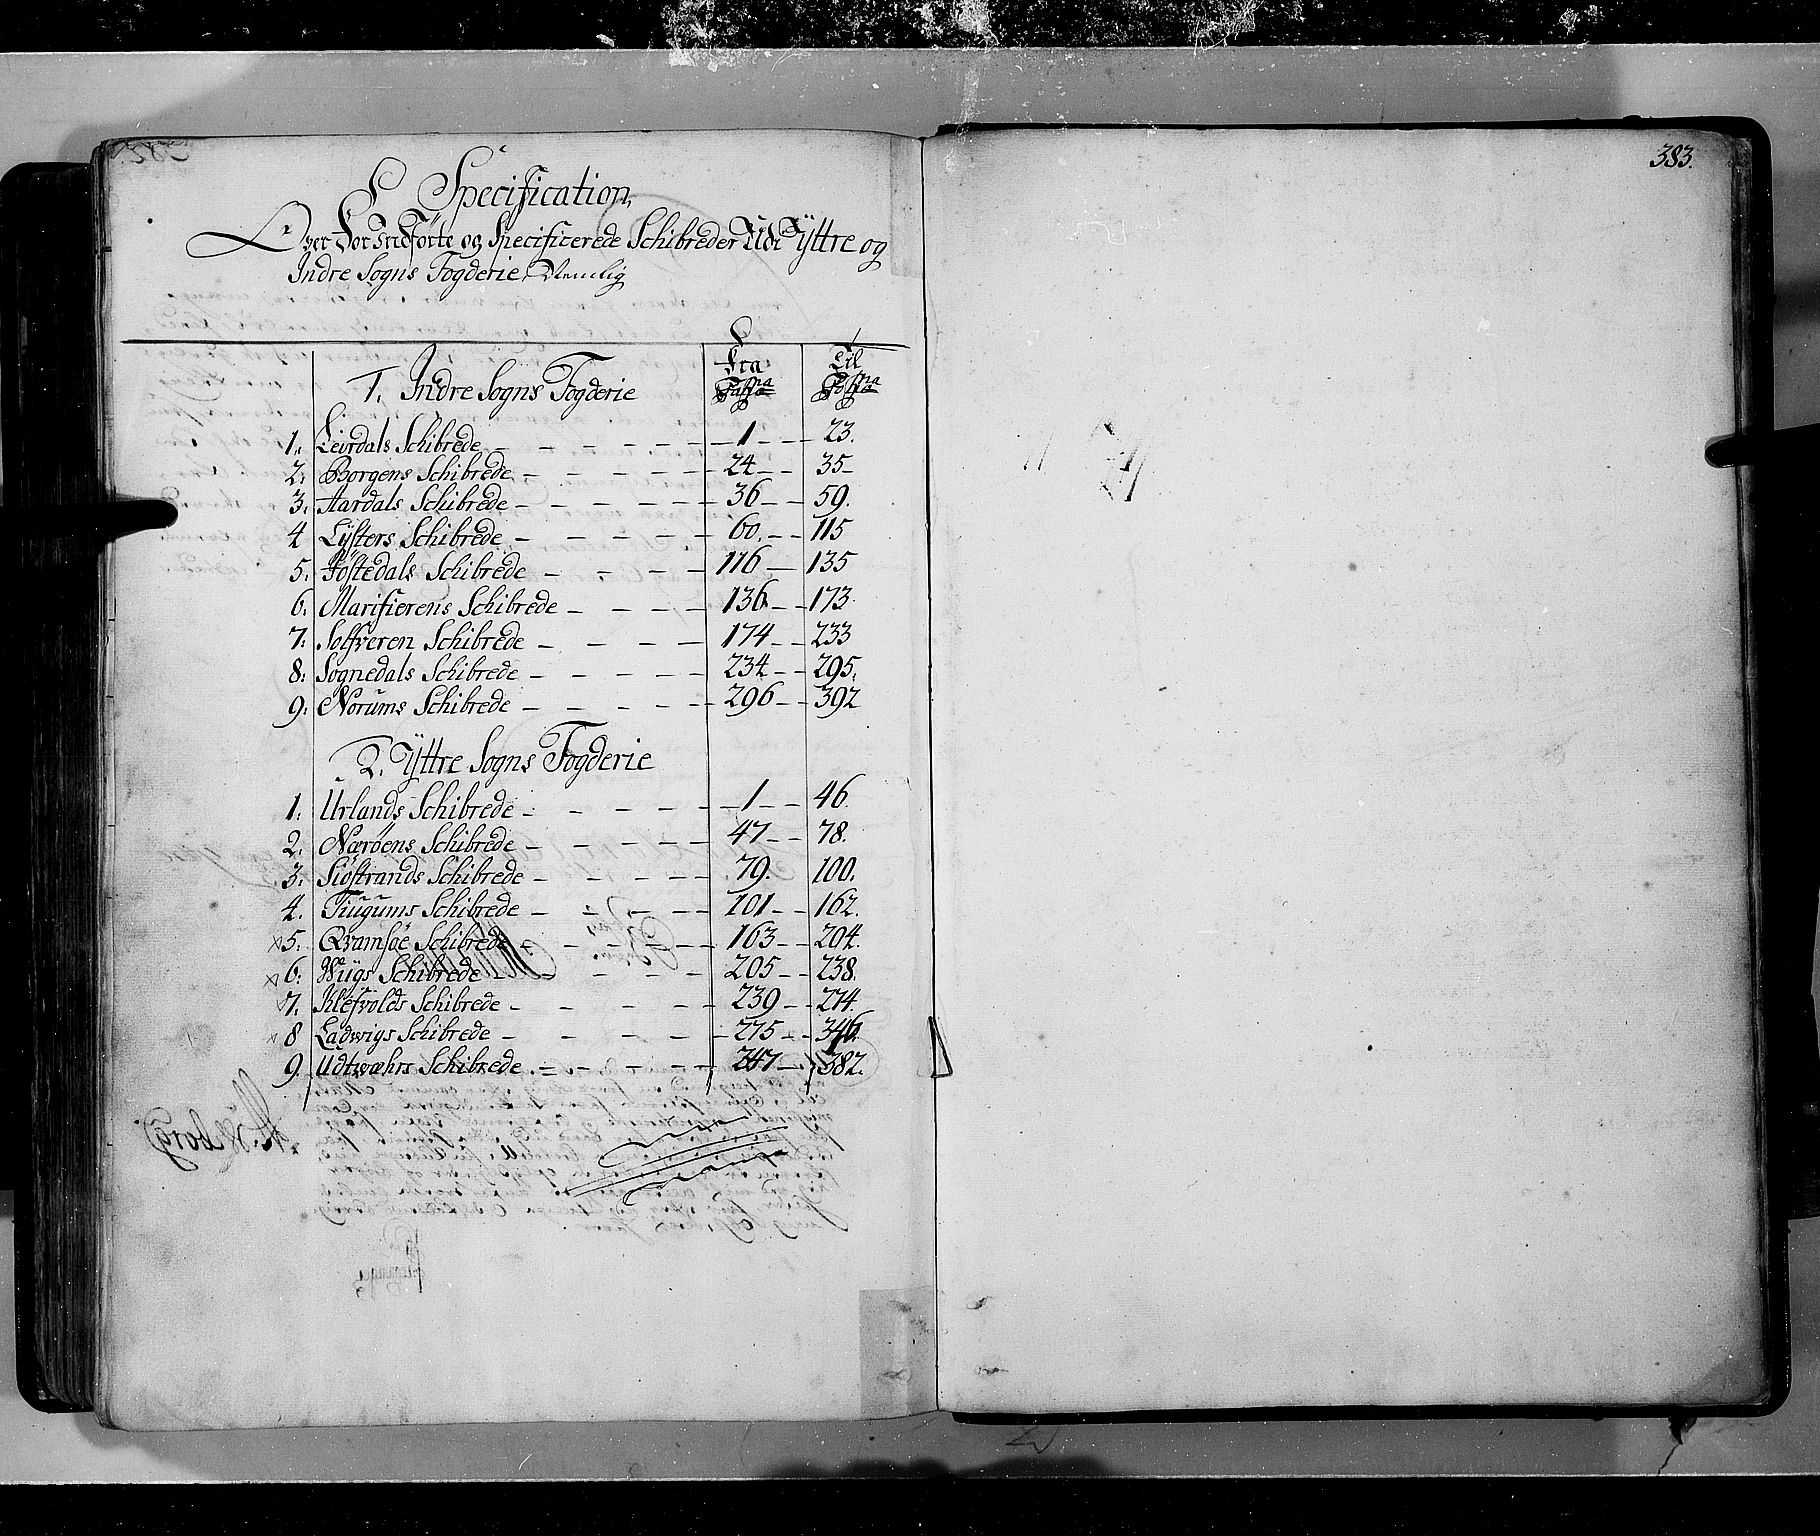 Specification,
Over For indförte og Specificerede Schibreder Udi Ÿttre og
Indre Sogns Fogderie, Nemlig
Fra Til
1. Indre Sogns Fogderie Pagina Pagina
1. Leirdals Schibrede 1 23.
2. Borgens Schibrede 24 35
3. Aardals Schibrede 36 59.
4 Lÿsters Schibrede 60. 115
5. Jöstedals Schibrede 116 135
6. Marifierens Schibrede 136 173
7. Solfveren Schibrede 174 233
8. Sognedals Schibrede 234 295.
9. Norums Schibrede 296 392
2. Ÿttre Sogns Fogderie
1. Urlands Schibrede 1 46
2. Nærøens Schibrede 47 78.
3. Siöstrands Schibrede 79. 100.
4. Tiugums Schibrede 101 162.
x5. Qvamsøe Schibrede 163 204.
x6. Wiigs Schibrede 205 238.
7. Klefvolds Schibrede 239 274.
x8 Ladwigs Schibrede 275 346.
9. Udtwæhrs Schibrede 347 382.
383.